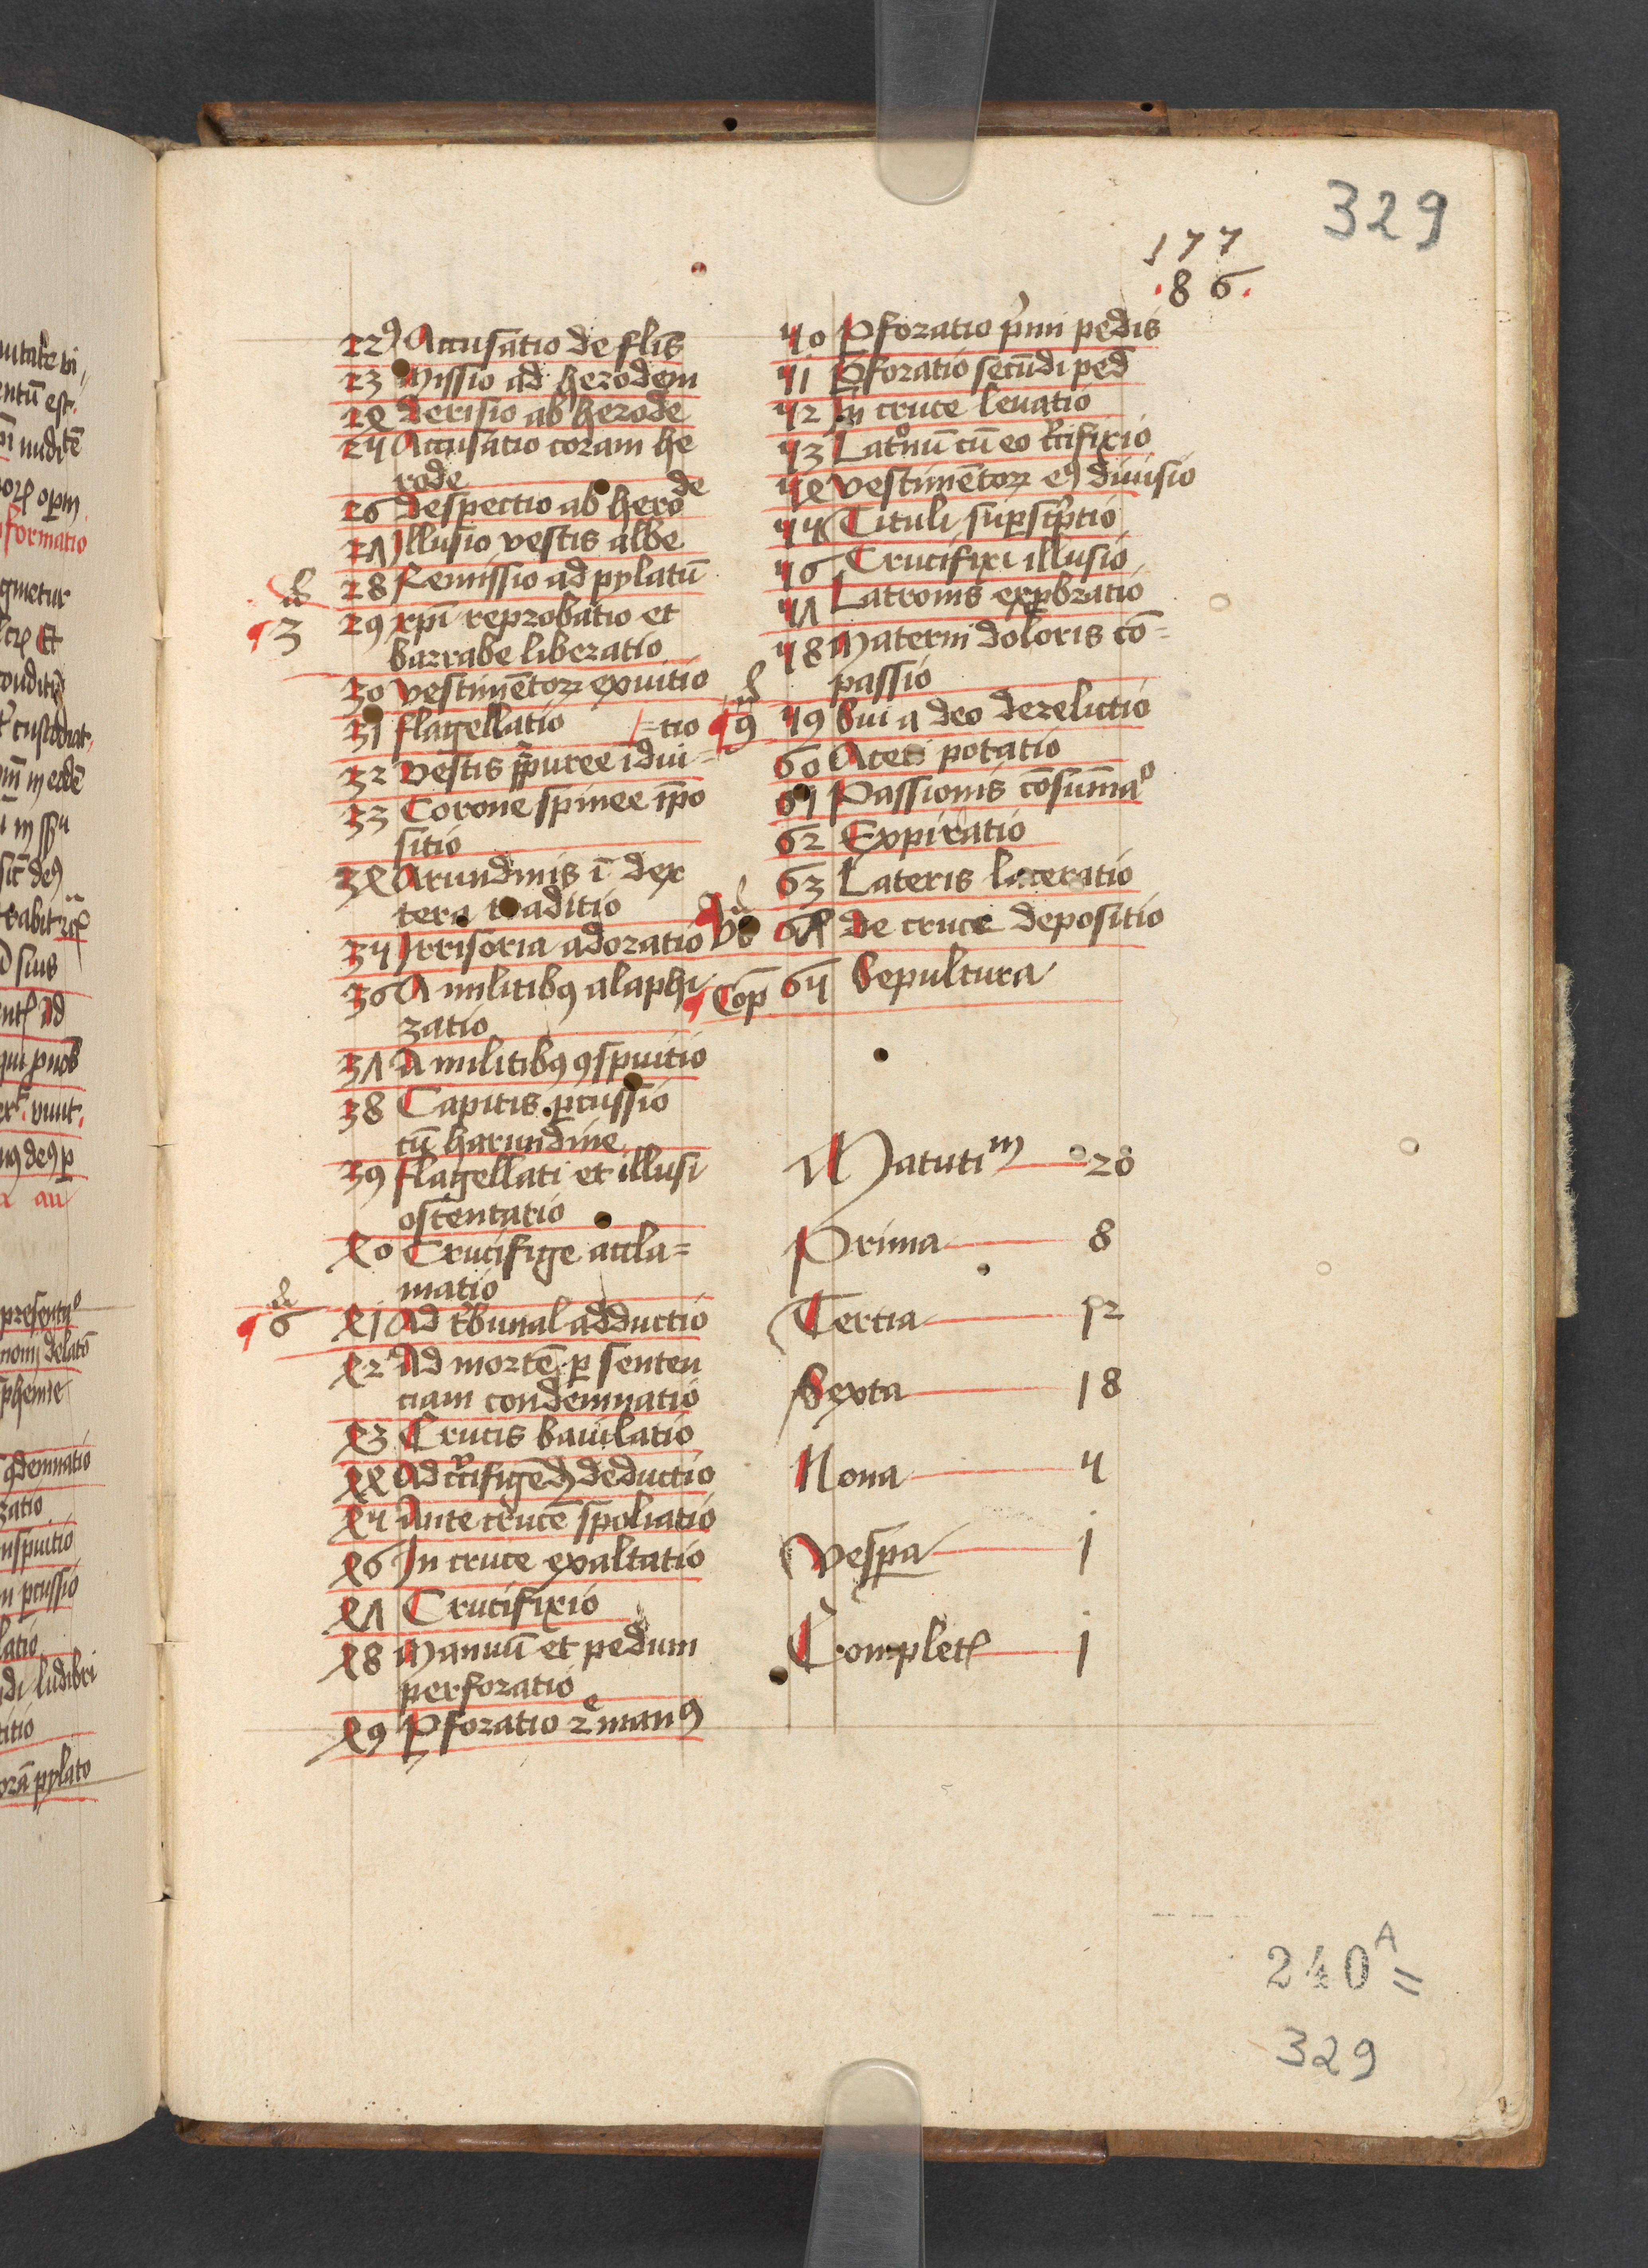 329
177
.86.
22 Accusatio de flis
23 Missio ad herodem
24 Derisio ab herode
25 Accusatio coram he
rode
26 Despectio ab herode
27 Illusio vestis albe
28 Remissio ad pylatū
3 29 xpi reprobatio et
barrabe liberatio
30 vestimētoꝝ exuitio
31 flagellatio
32 vestis ꝓpuree idui=
=tio
33 Corone spinee īpo
sitio
34 Arundinis ī dex
tera traditio
35 Irrisoria adoratio
36 A militibꝯ alaphi
zatio
37 A militibꝯ ꝯspuitio
38 Capitis ꝑcussio
cū harundine
39 flagellati et illusi
ostentatio
40 Crucifige accla=
matio
6 41 Ad tͥbunal adductio
42 Ad mortē ꝑ senten
ciam condemnatio
43 Crucis baiulatio
44 Ad crͥcifigēdꝫ deductio
45 Ante crucē spoliatio
46 In cruce exaltatio
47 Crucifixio
48 Manuū et pedum
perforatio
49 ꝑforatio 2ͤ manꝯ
50 ꝑforatio pͥmi pedis
51 ꝑforatio secūdi ped
52 In cruce leuatio
53 Latͦnū cū eo crͥcifixio
54 vestimētoꝝ eꝯ diuisio
55 Tituli suꝑscͥptio
56 Crucifixi illusio
57 Latronis exꝓbratio
58 Materni doloris cō=
passio
9 59 Sui a deo derelictio
60 Aceti potatio
61 Passionis cōsūmaͦ
62 Expiratio
63 Lateris laceratio
64 de cruce depositio
Cop̄ 65 Sepultura
Matutiͫ 20
Prima 8
Tertia 12
Sexta 18
Nona 5
Vesꝑa 1
Complet 1
240 A =
329